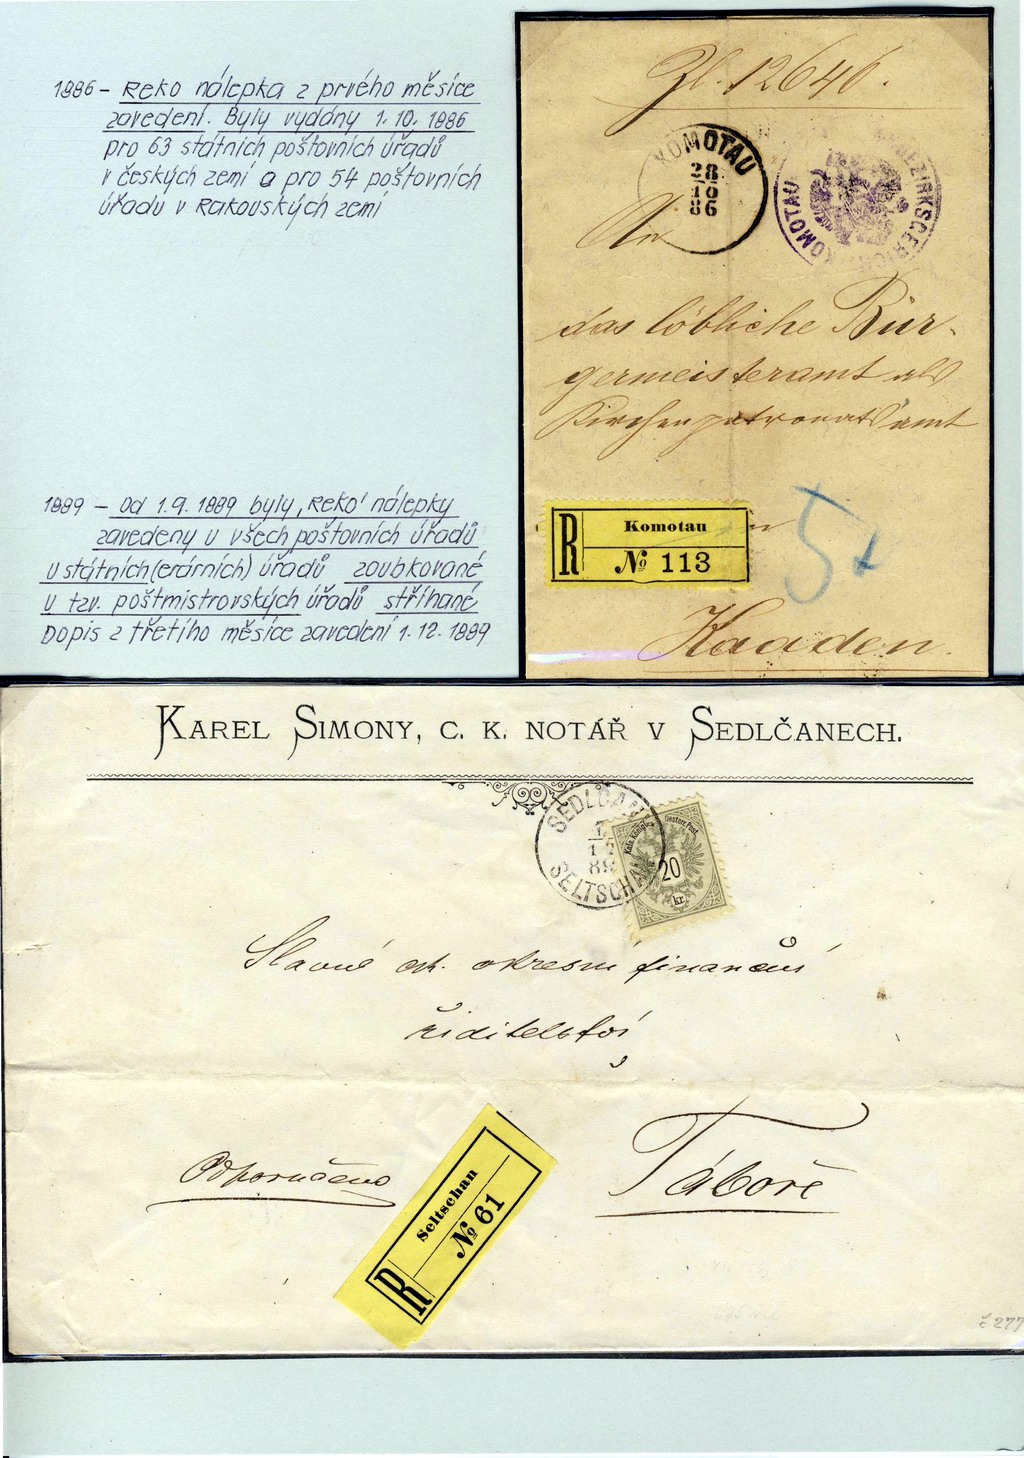 1886 – Reko nálepka z prvého měsíce
zavedení. Byly vydány 1.10.1886
pro 63 státních poštovních úřadů
v českých zemí a pro 54 poštovních
úřadu v Rakouských zemí
Zl. 12646.
KOMOTAU
28
10
86
KOMOTAU
BEZIRKSGERICH
An
das löbliche Bür-
germeisteramt als
Kirchenpatronatsamt
R
Komotau
№ 113
Kaaden.
1889 – Od 1.9.1889 byly ‚Reko' nálepky
zavedeny u všech poštovních úřadů
u státních (erárních) úřadů zoubkované
u tzv. poštmistrovských úřadů stříhané
Dopis z třetího měsíce zavedení 1.12.1889
KAREL SIMONY, C. K. NOTÁŘ V SEDLČANECH.
SEDLČAN
1
12
89
SELTSCHAN
Kais. Königl.
Oesterr. Post.
20
kr.
Slavné ck. okresní finanční
ředitelství
Odporučeno
Táboře
R
Seltschan
№ 61
č 277